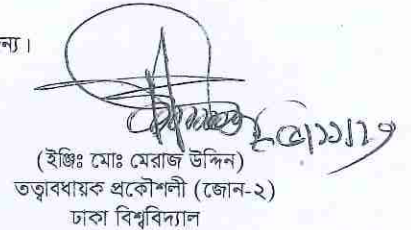 ন্য।
(ইঞ্জিঃ মোঃ মেরাজ উদ্দিন)
তত্বাবধায়ক প্রকৌশলী (জোন-২)
ঢাকা বিশ্ববিদ্যাল